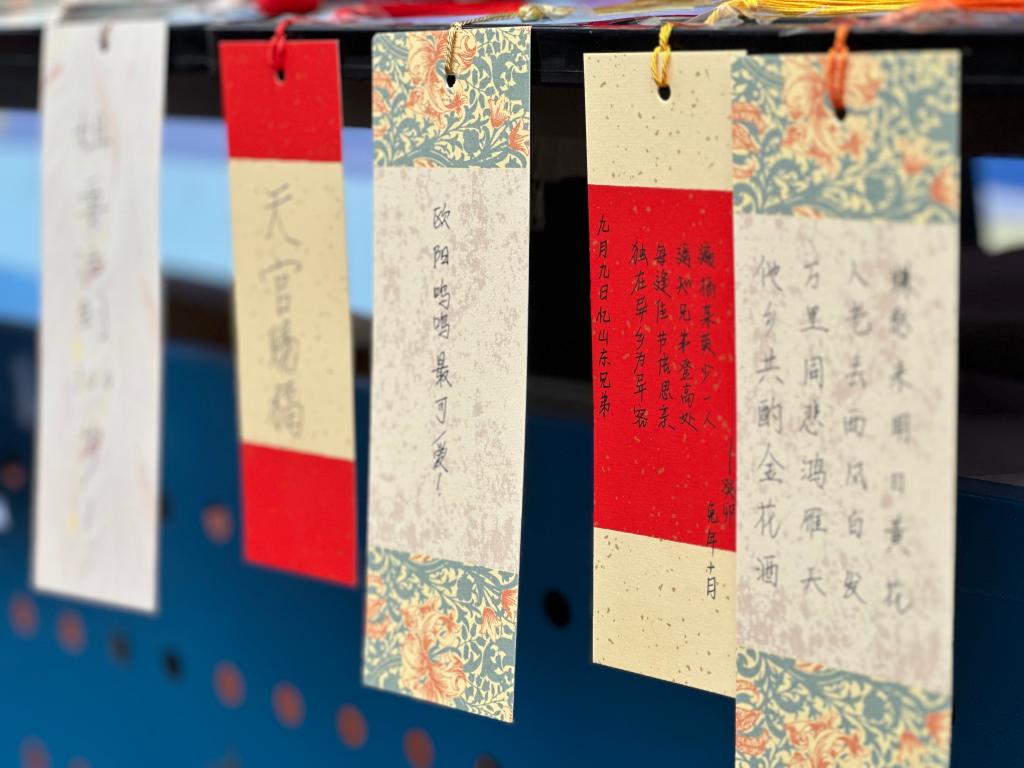 天官賜福
欧阳呜呜最可爱!
九月九日忆山东兄弟
独在异乡为异客
每逢佳节倍思亲
遥知兄弟登高处
遍插茱萸少一人
——癸卯
兔年十月
他乡共酌金花酒
万里同悲鸿雁天
人老去西风白发
蝶愁来明日黄花